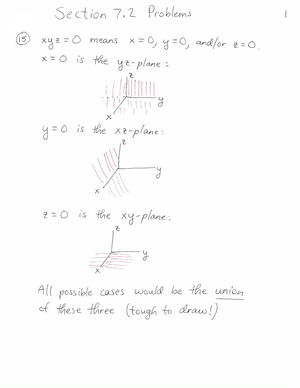 Section 7.2 Problems
1
15 xyz=0 means x=0, y=0, and/or z=0.
x=0 is the yz-plane:
z
y
x
y=0 is the xz-plane:
z
y
x
z=0 is the xy-plane:
z
y
x
All possible cases would be the union
of these three (tough to draw!)